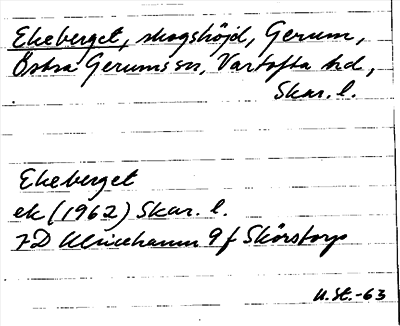 Ekeberget, skogshöjd, Gerum,
Östra Gerums sn, Vartofta hd,
Skar. l.
Ekeberget
ek (1962) Skar. l.
7D Ulricehamn 9f Skörstorp
U.St.-63